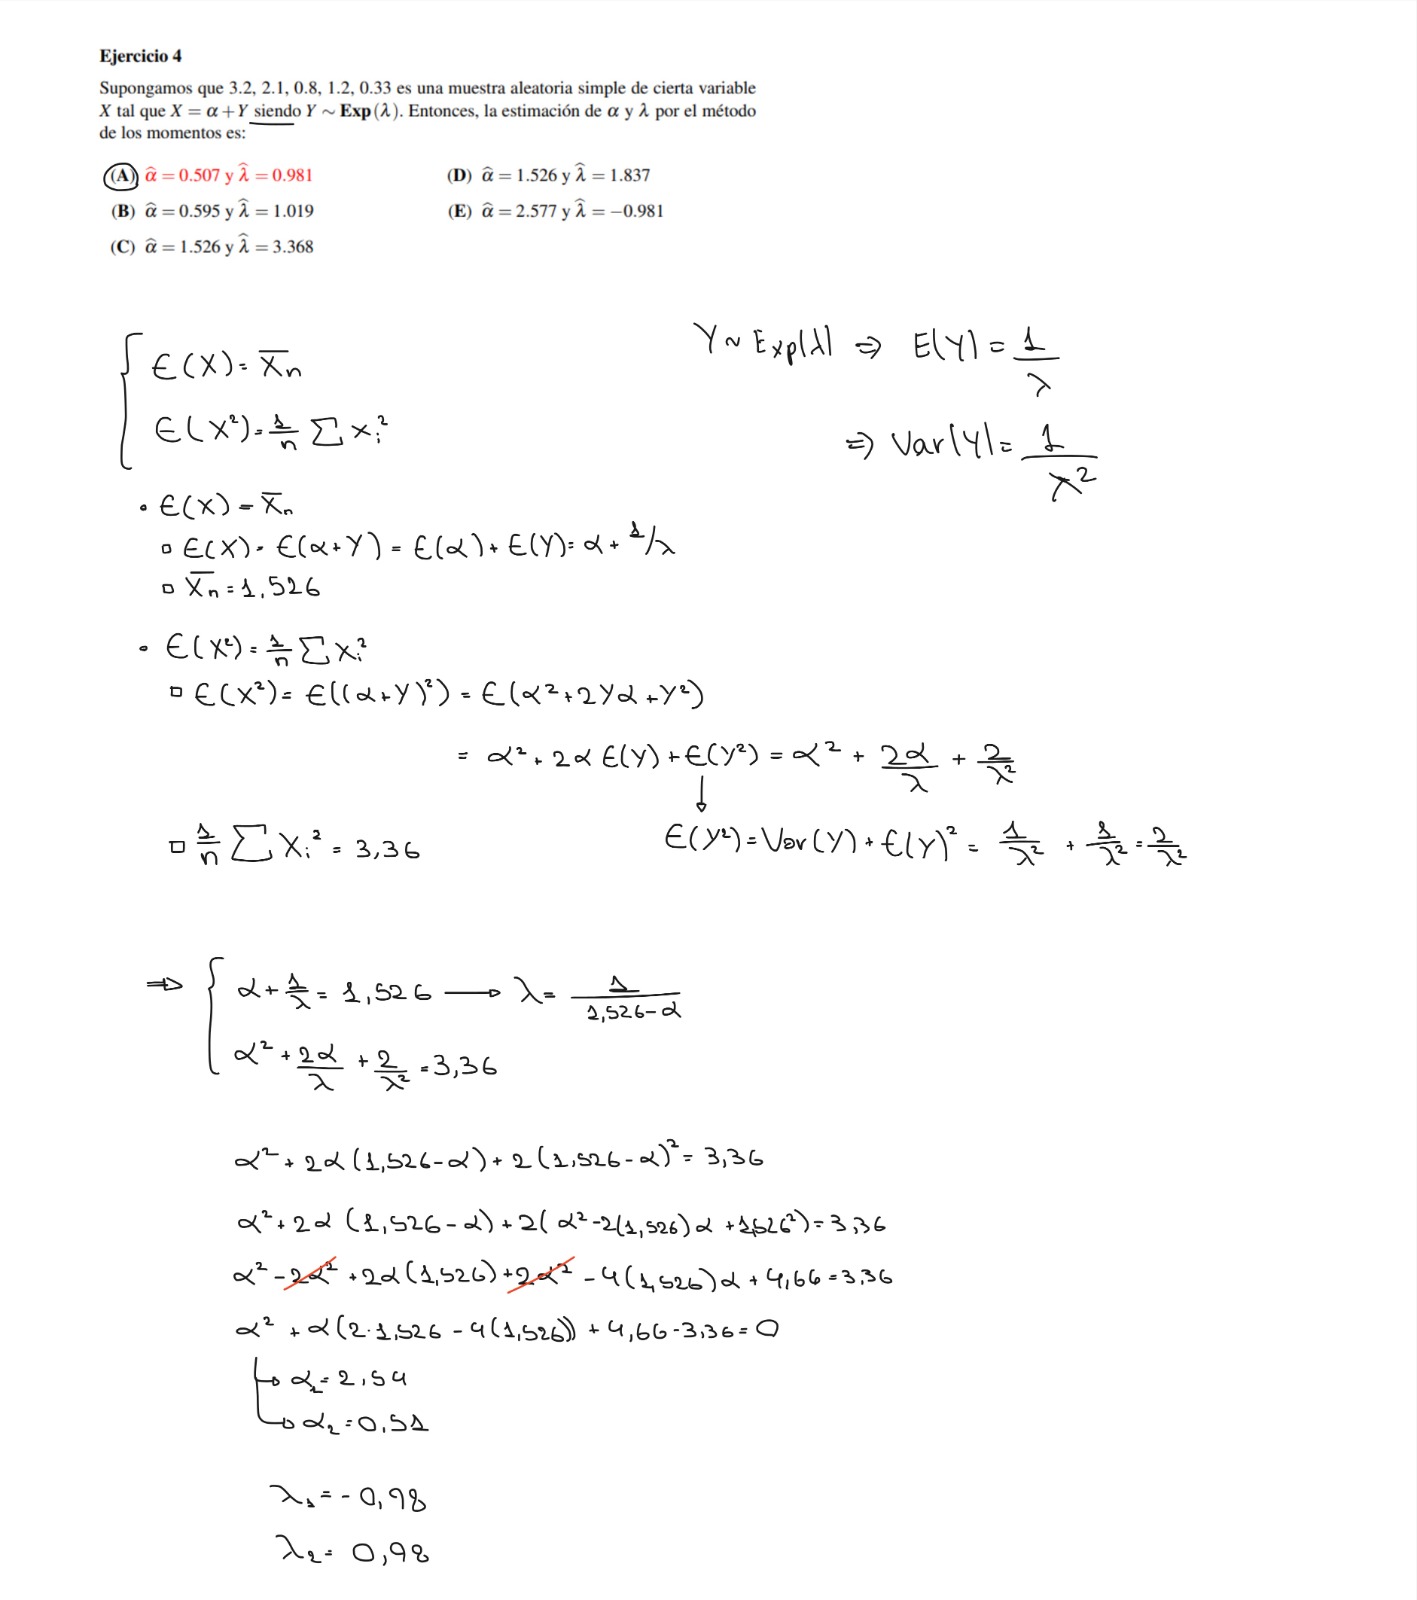 Ejercicio 4
Supongamos que 3.2, 2.1, 0.8, 1.2, 0.33 es una muestra aleatoria simple de cierta variable
X tal que X = α+Y siendo Y ~ Exp(λ). Entonces, la estimación de α y λ por el método
de los momentos es:
(A) α̂ = 0.507 y λ̂ = 0.981
(D) α̂ = 1.526 y λ̂ = 1.837
(B) α̂ = 0.595 y λ̂ = 1.019
(E) α̂ = 2.577 y λ̂ = −0.981
(C) α̂ = 1.526 y λ̂ = 3.368
Y ~ Exp(λ) ⇒ E(Y) = 1/λ
⇒ Var(Y) = 1/λ²
{ E(X) = X̄n
E(X²) = 1/n ∑ xi²
• E(X) = X̄n
▫ E(X) = E(α+Y) = E(α) + E(Y) = α + 1/λ
▫ X̄n = 1,526
• E(X²) = 1/n ∑ Xi²
▫ E(X²) = E((α+Y)²) = E(α²+2Yα+Y²)
= α² + 2α E(Y) + E(Y²) = α² + 2α/λ + 2/λ²
↓
▫ 1/n ∑ Xi² = 3,36
E(Y²) = Var(Y) + E(Y)² = 1/λ² + 1/λ² = 2/λ²
⇒ { α + 1/λ = 1,526 → λ = 1/(1,526-α)
α² + 2α/λ + 2/λ² = 3,36
α² + 2α(1,526-α) + 2(1,526-α)² = 3,36
α² + 2α (1,526-α) + 2(α²-2(1,526)α +1,526²) = 3,36
α² - 2α² + 2α(1,526) + 2α² - 4(1,526)α + 4,66 = 3,36
α² + α(2·1,526 - 4(1,526)) + 4,66-3,36 = 0
↳ α₁ = 2,54
↳ α₂ = 0,51
λ₁ = -0,98
λ₂ = 0,98